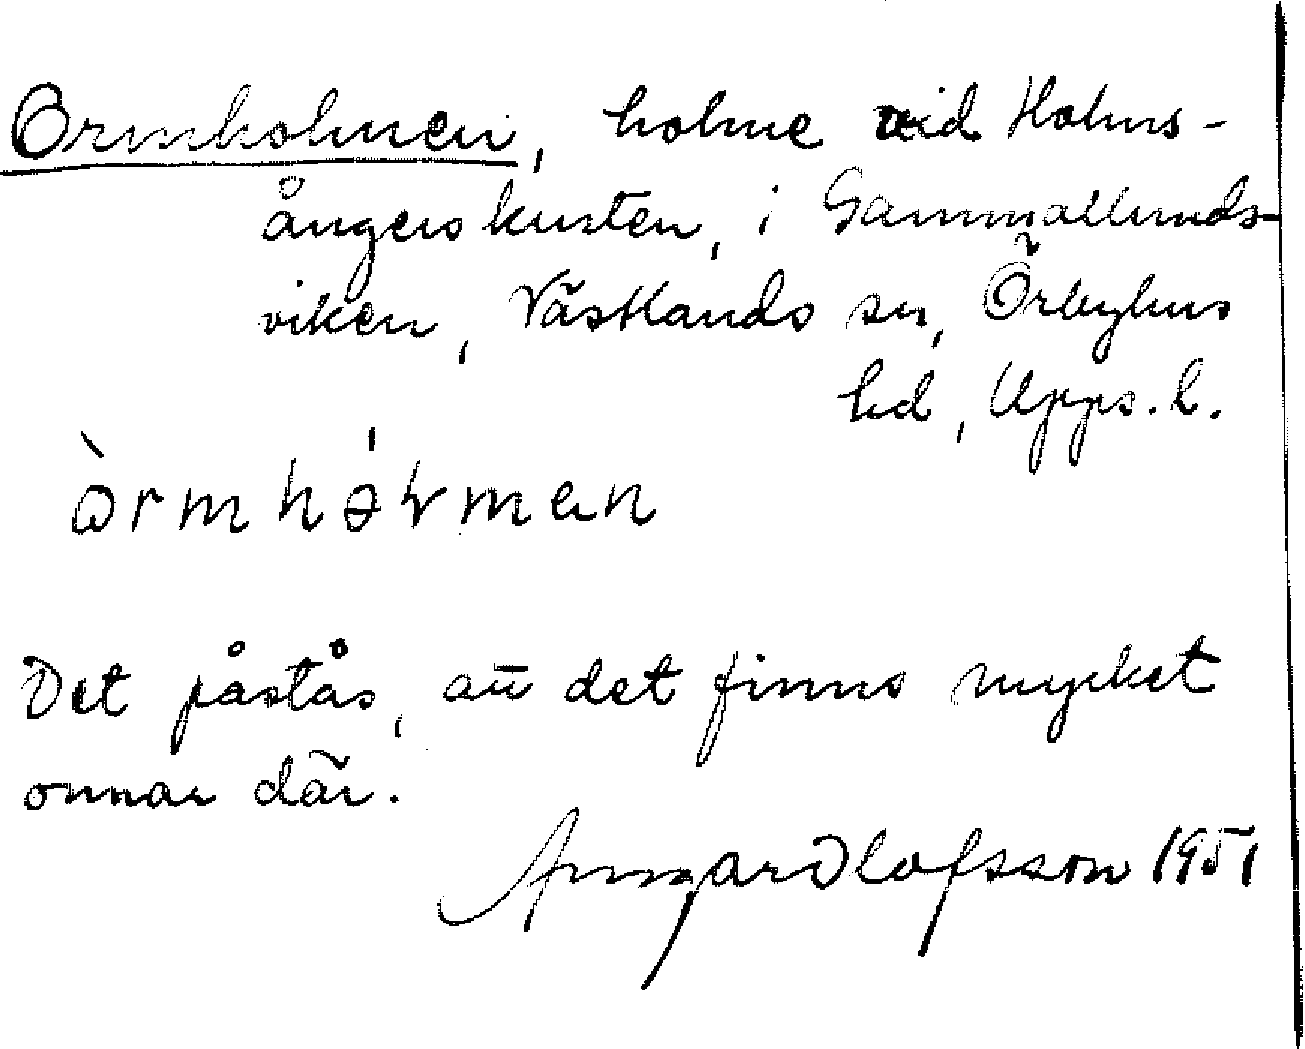 Ormholmen, holme vid Holms-
ångerskusten, i Gammallunds-
viken, Västlands sn, Örbyhus
hd, Upps. l.
òrmhɵ́lmen
Det påstås, att det finns mycket
ormar där.
Olofsson 1951